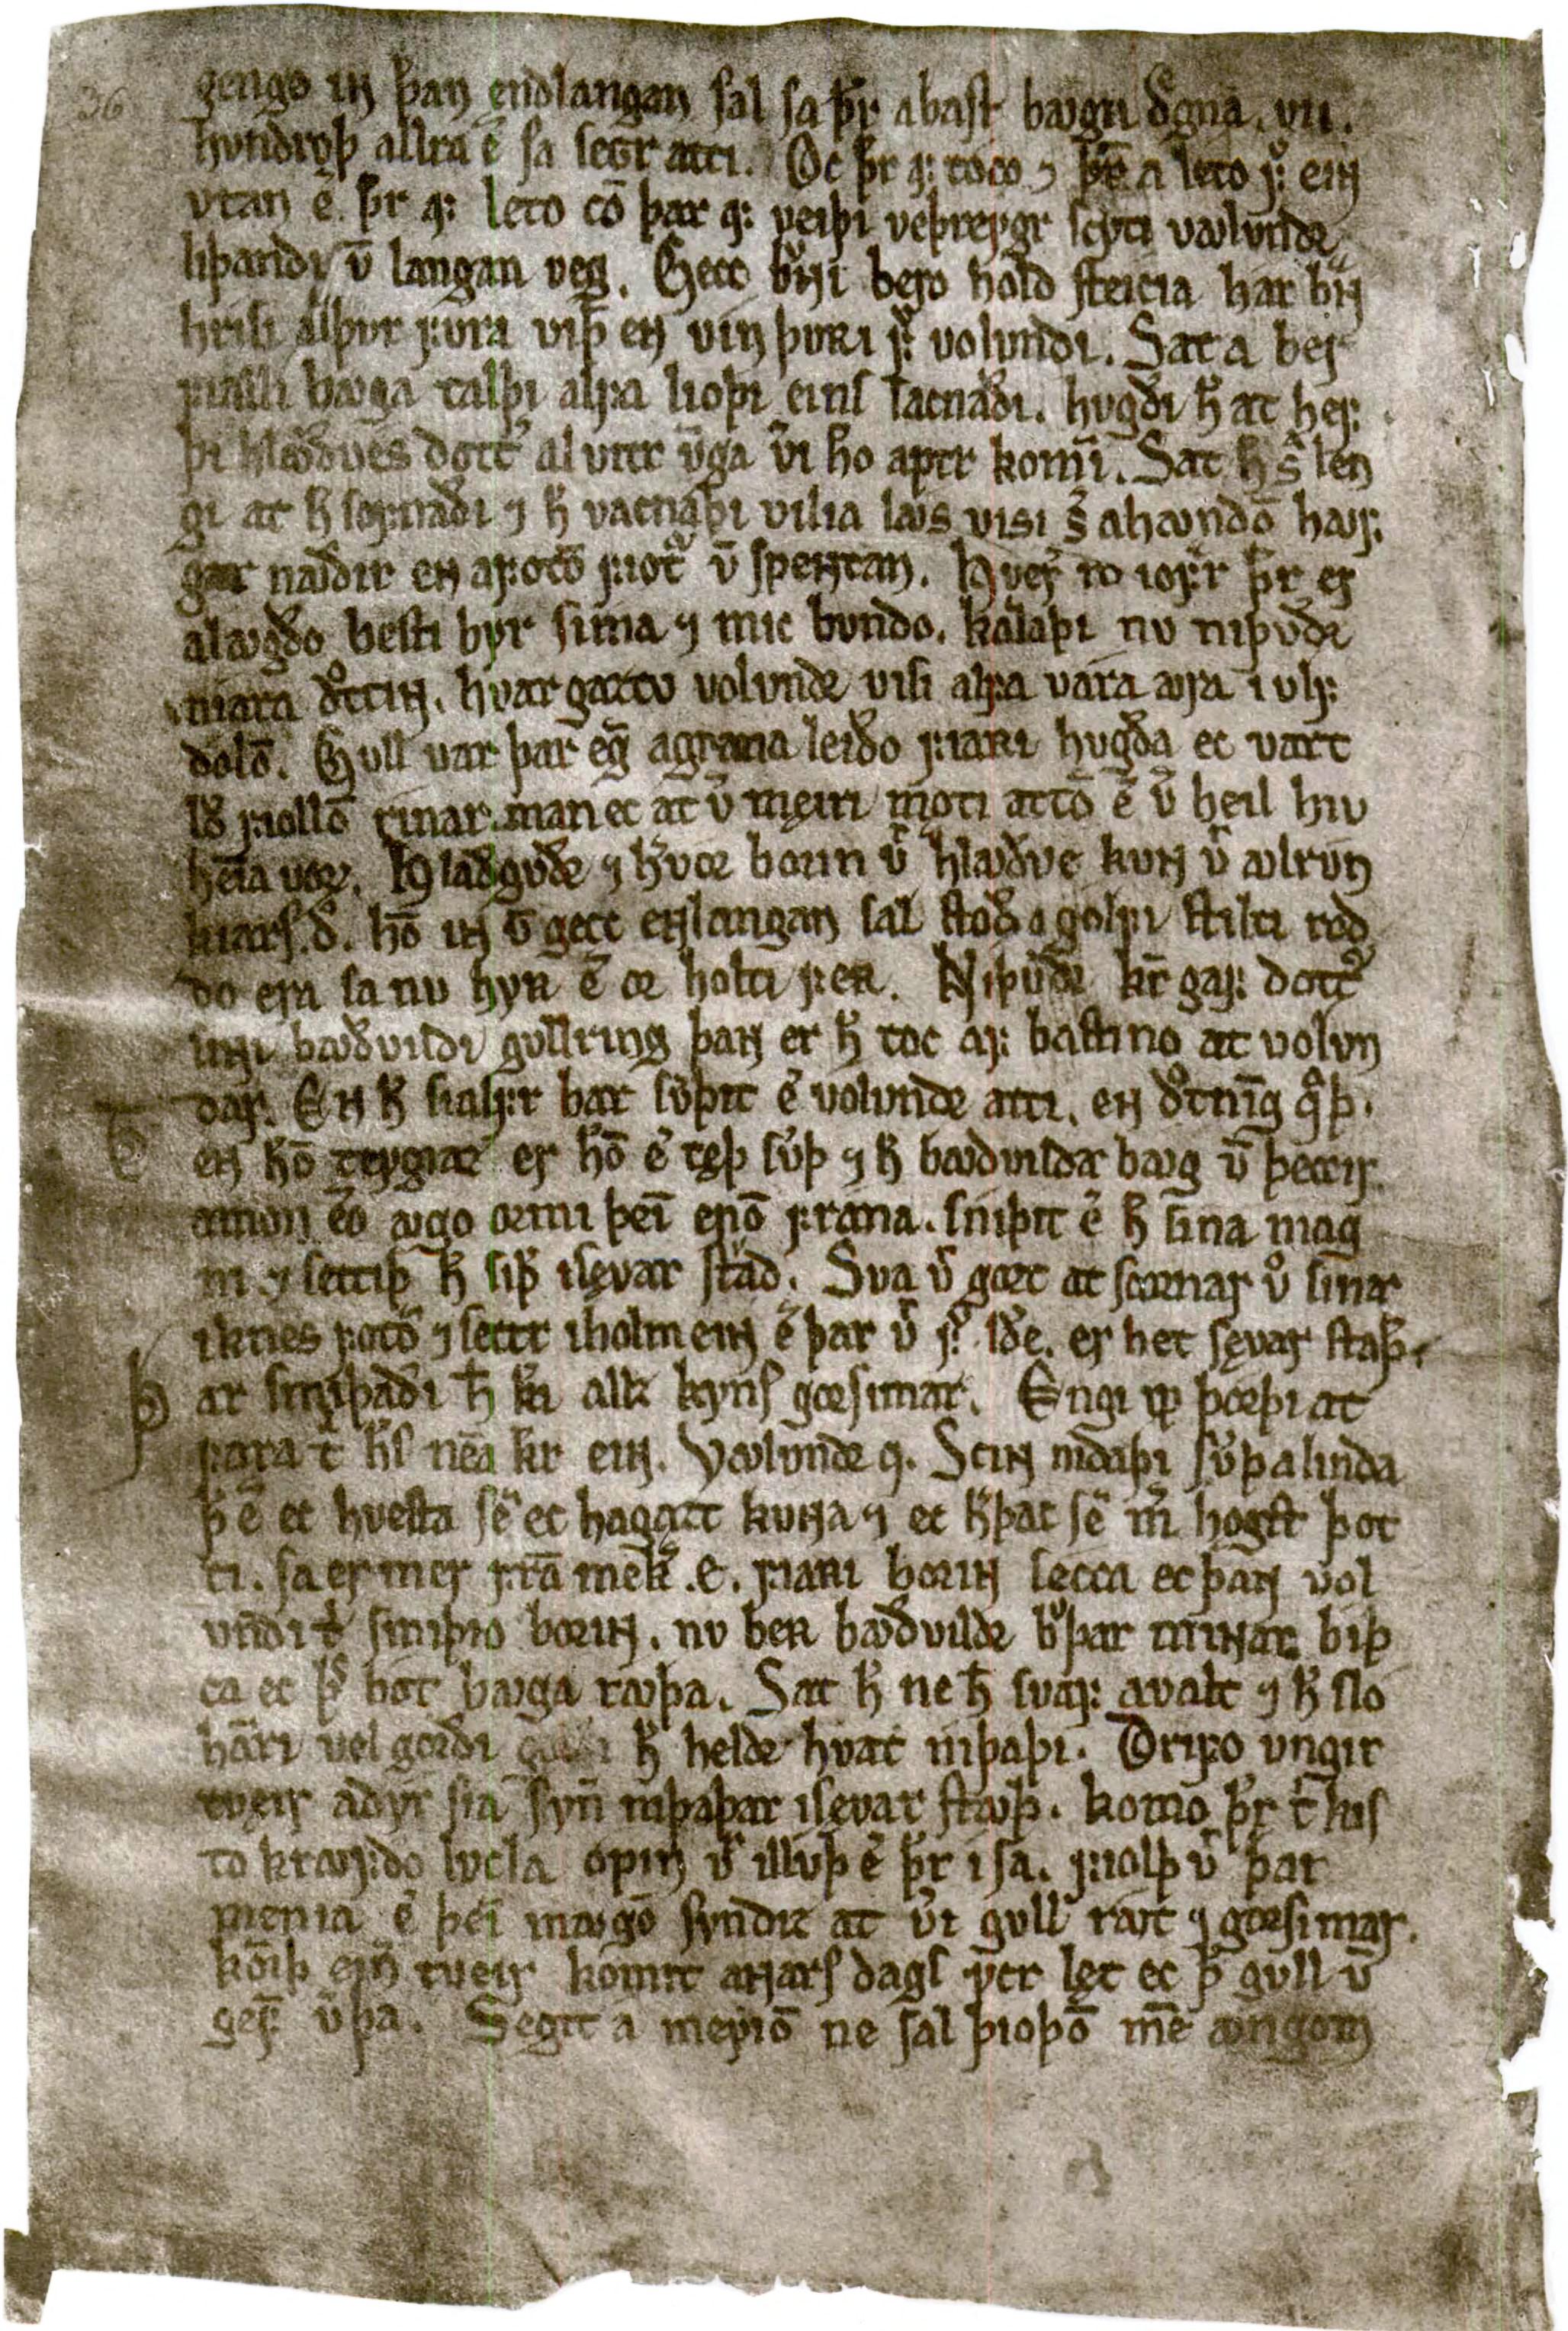 36
gengo in þan endlangan sal sa þr̄ a bast bꜹga dgna . vii .
hvndroþ allra ē sa seɢr atti . Oc þr aꝼ toco ⁊ þr̄ a leto ꝼ͛ ein
vtan ē þr aꝼ leto cō þar aꝼ veiþi veþreygr scyti vꜹlundr
liþandi v̄ langan veg . Gecc bͮni bero hold steicia har bͮn
hrisi allþur ꝼura viþ en vin þuʀi ꝼ͛ volundi . Sat a ber
ꝼialli bꜹga talþi alꝼa lioþi eins sacnaði . hvgði h̄ at heꝼ
þi hlꜹdves dott͛ al vitr v̄ga v͛i ho aptr komī . Sat h̄ s͛ len
gi at h̄ soꝼnaði ⁊ h̄ vacnaþi vilia lꜹs vissi s͛ a hꜹndō hꜹꝼ
gar nꜹðir en a ꝼotō ꝼiotͬ v̄ spentan . Hver͛ ro ioꝼrͬ þr er
a lꜹgðo besti byr sima ⁊ mic bvndo . kallaþi nv niþvðr
niara dͦttin . hvar gaztv volundr visi alꝼa vara ꜹra i vlꝼ
dolō . Gull var þar eg̅ a grana leiðo ꝼiaʀi hvgða ec vart
ld ꝼiollō rinar . man ec at v͛ męiri męti attō ē v͛ heil hiv
heīa vorō . Hladgvðr ⁊ h͛vor borin v͛ hlꜹðve kvn v͛ ꜹlrvn
kiars . d . hō in v̄ gecc enlangan sal stoð a golꝼi stilti rꜹd
do era sa nv hyʀ ē or holti ꝼeʀ . Niþvðr kr̄ gaꝼ dott͛
sini bꜹðvildi gullring þan er h̄ toc aꝼ bastino at volun
dar . En h̄ sialꝼr bar sv͛þit ē volundr atti . en dͦtnīg qͣþ .
en hō teygiaz er hō ē tęþ sv͛þ ⁊ h̄ bꜹdvildar bꜹg v̄ þeccir
amon ēo ꜹgo ormi þei̅ enō ꝼrana . sniþit ē h̄ sina mag
ni ⁊ settiþ h̄ siþ i sęvar stꜹd . Sva v͛ gort at scornar vͦ sinar
i knes ꝼotō ⁊ settr i holm ein ē þar v͛ ꝼ͛ lðe . er het sęvar staþr
þar smiþaði h̄ kͥ allz kyns gorsimar . Engi mͣþr þorþi at
ꝼara t͛ h̄s nēa kr ein . Vꜹlundr q . Scin nidaþi sv͛þ a linda
þ ē ec hvesta sē ec hagazt kvna ⁊ ec h͛þac sē m͛ hogst þot
ti . sa er mer ꝼrā mękͥ . ę . ꝼiaʀi borin secca ec þan vol
vndi t͛ smiþio borin . nv beʀ bꜹðvildr bͮþar minar biþ
ca ec þ̄s bot bꜹga rꜹþa . Sat h̄ ne h̄ svaꝼ a valt ⁊ h̄ slo
hāri vel gorði h̄ heldr hvat niþaþi . Driꝼo vngir
tveir a dyr sia syn̅ niþaþar i sęvar stꜹþ . komo þr t͛ kis
to krꜹꝼdo lvcla opin v͛ illvþ ē þr i sa . ꝼiolþ v͛ þar
menia ē þei̅ mꜹgō syndiz at v͛i gull rꜹt ⁊ gorsimar .
komiþ ein̅ tveir komit anars dags ycr lęt ec þ gull v̄
geꝼ̅ v͛þa . Segit a meyiō ne sal þioþō mē ꜹngom